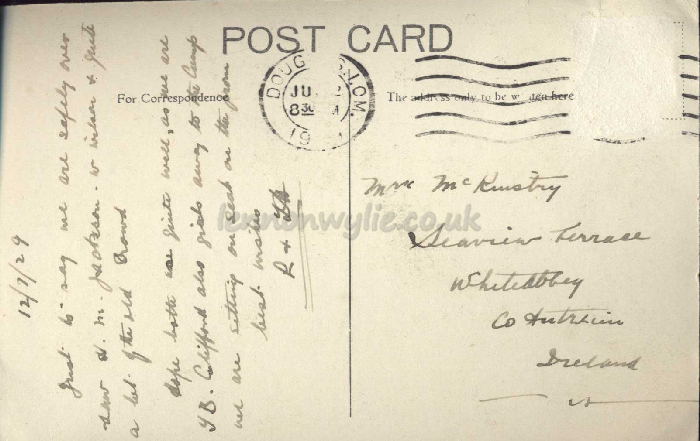 POST CARD
For Correspondence
The address only to be written here
DOUGLAS I.O.M.
JU
830 A
19
12/7/29
Just to say we are safely over
saw H. M. Jackson & wilson & quite
a lot of the old crowd
hope both are quite well, as we are
Clifford also girls away to the Camp
we are sitting on seat on the prom
best wishes
R &
Mrs McKinstry
Seaview Terrace
Whiteabbey
Co Antrim
Ireland
lennonwylie.co.uk